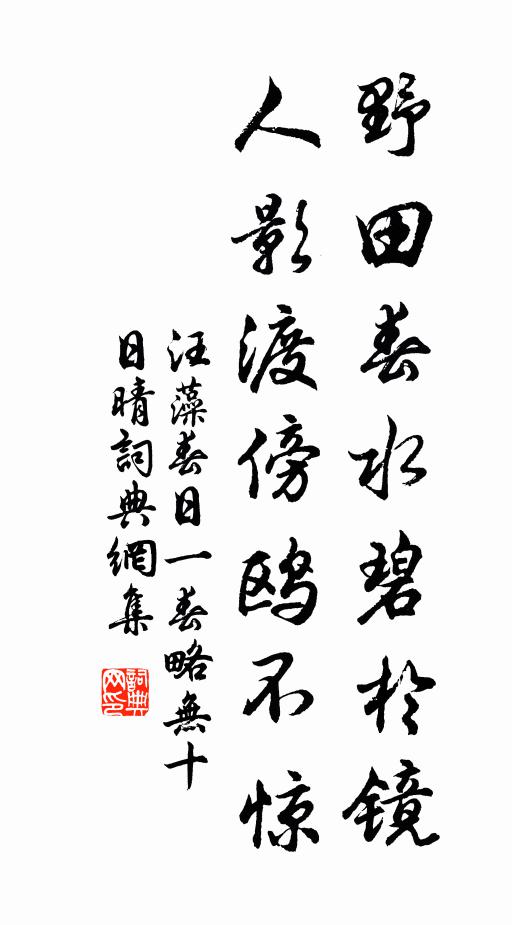 野田春水碧於镜
人影渡傍鸥不惊
汪藻春日一春略無十
日晴詞典網集
詞典网印